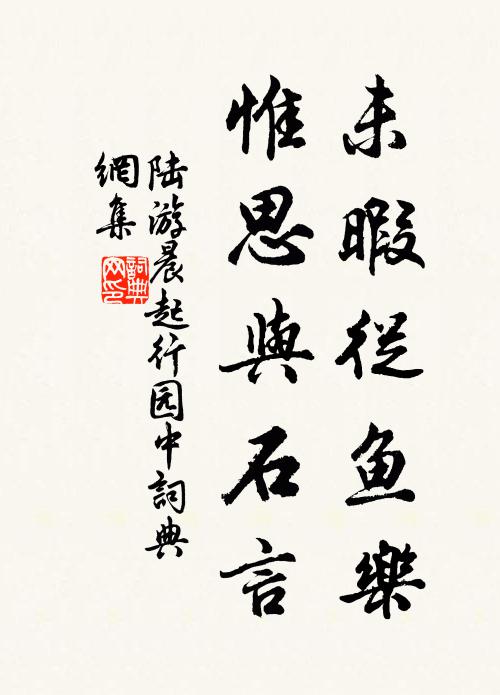 未暇從鱼樂
惟思與石言
陆游晨起行园中詞典
網集
詞典网印